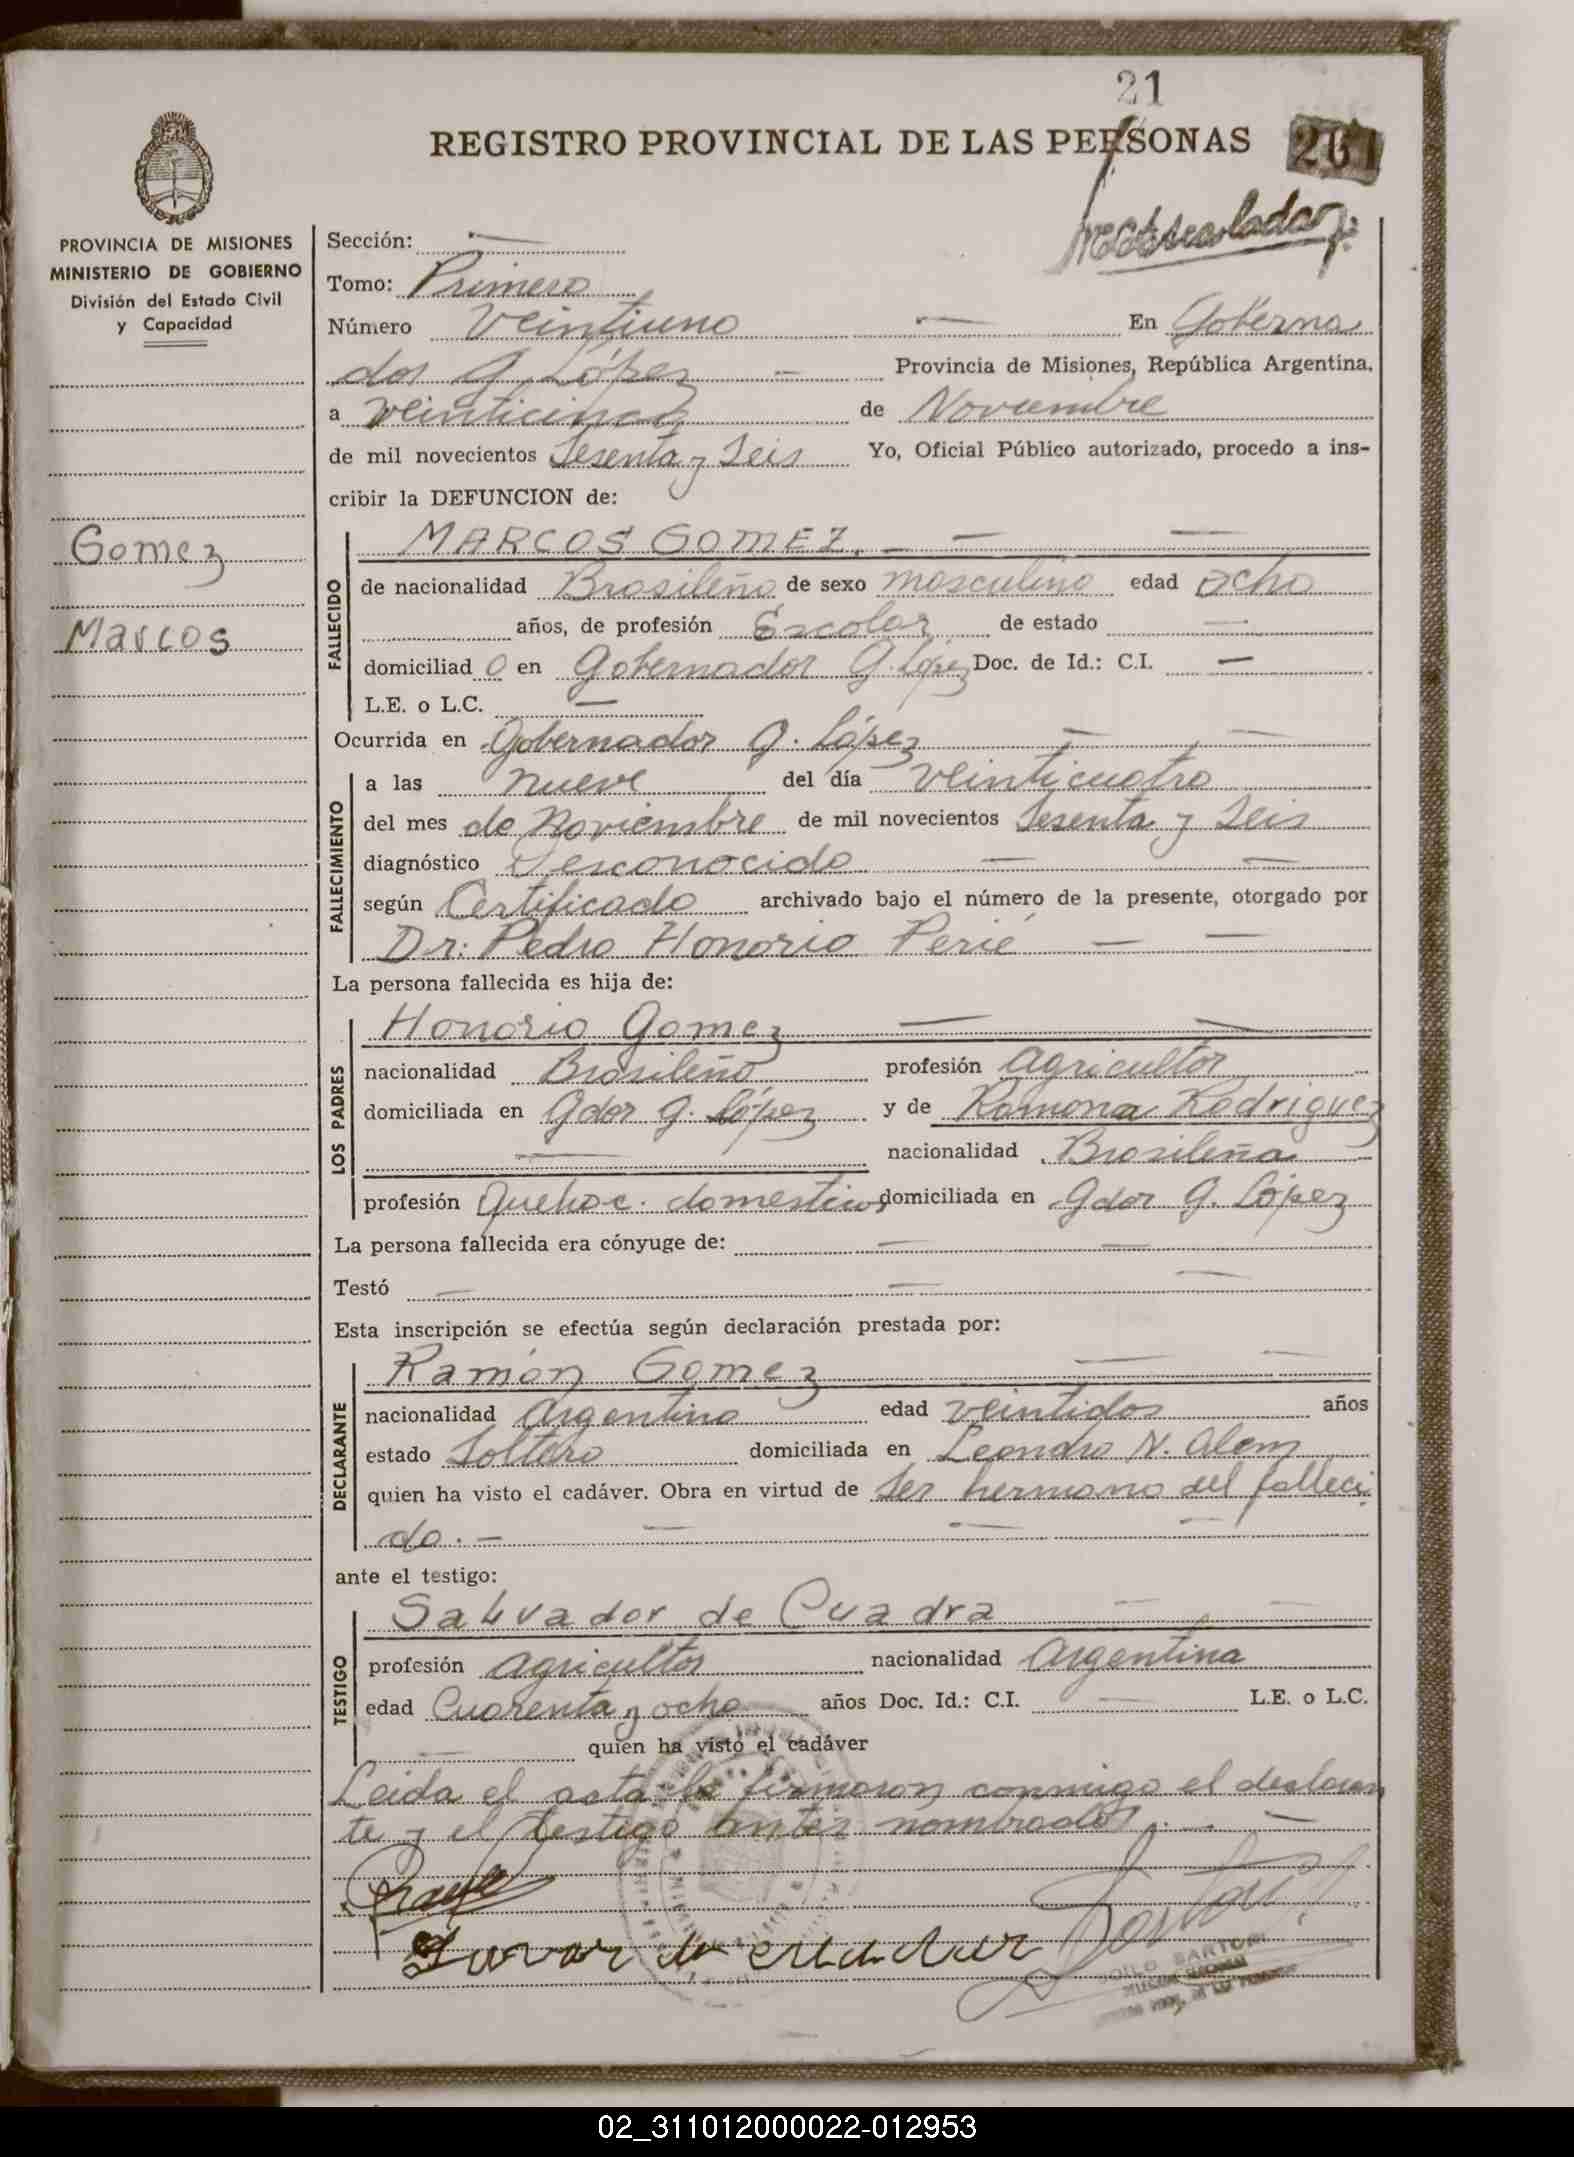 21
REGISTRO PROVINCIAL DE LAS PERSONAS 261
PROVINCIA DE MISIONES
MINISTERIO DE GOBIERNO
División del Estado Civil
y Capacidad
Gomez
Marcos
Sección: —
Tomo: Primero
Número Veintiuno — En Goberna
dor G. López — Provincia de Misiones, República Argentina,
a veinticinco de Noviembre
de mil novecientos Sesenta y Seis Yo, Oficial Público autorizado, procedo a ins-
cribir la DEFUNCION de:
FALLECIDO
MARCOS GOMEZ. — — —
de nacionalidad Brasileño de sexo masculino edad ocho
años, de profesión Escolar de estado —
domiciliad o en Gobernador G. López Doc. de Id.: C.I. —
L.E. o L.C. —
Ocurrida en Gobernador G. López — —
FALLECIMIENTO
a las nueve del día veinticuatro
del mes de Noviembre de mil novecientos Sesenta y Seis
diagnóstico Desconocido — —
según Certificado archivado bajo el número de la presente, otorgado por
Dr: Pedro Honorio Perié — —
La persona fallecida es hija de:
LOS PADRES
Honorio Gomez — —
nacionalidad Brasileño profesión agricultor
domiciliada en Gdor G. López y de Ramona Rodriguez
— nacionalidad Brasileña
profesión Quehac. domesticos domiciliada en Gdor G. López
La persona fallecida era cónyuge de: — —
Testó — — —
Esta inscripción se efectúa según declaración prestada por:
DECLARANTE
Ramón Gomez — —
nacionalidad Argentino edad veintidos años
estado Soltero domiciliada en Leandro N. Alem
quien ha visto el cadáver. Obra en virtud de Ser hermano del falleci
do. — — — —
ante el testigo:
TESTIGO
Salvador de Cuadra — —
profesión agricultor nacionalidad Argentina
edad Cuarenta y ocho años Doc. Id.: C.I. — L.E. o L.C.
— quien ha visto el cadáver
Leida el acta la firmaron conmigo el declaran
te y el testigo antes nombrados. — —
SARTORI
02_311012000022-012953